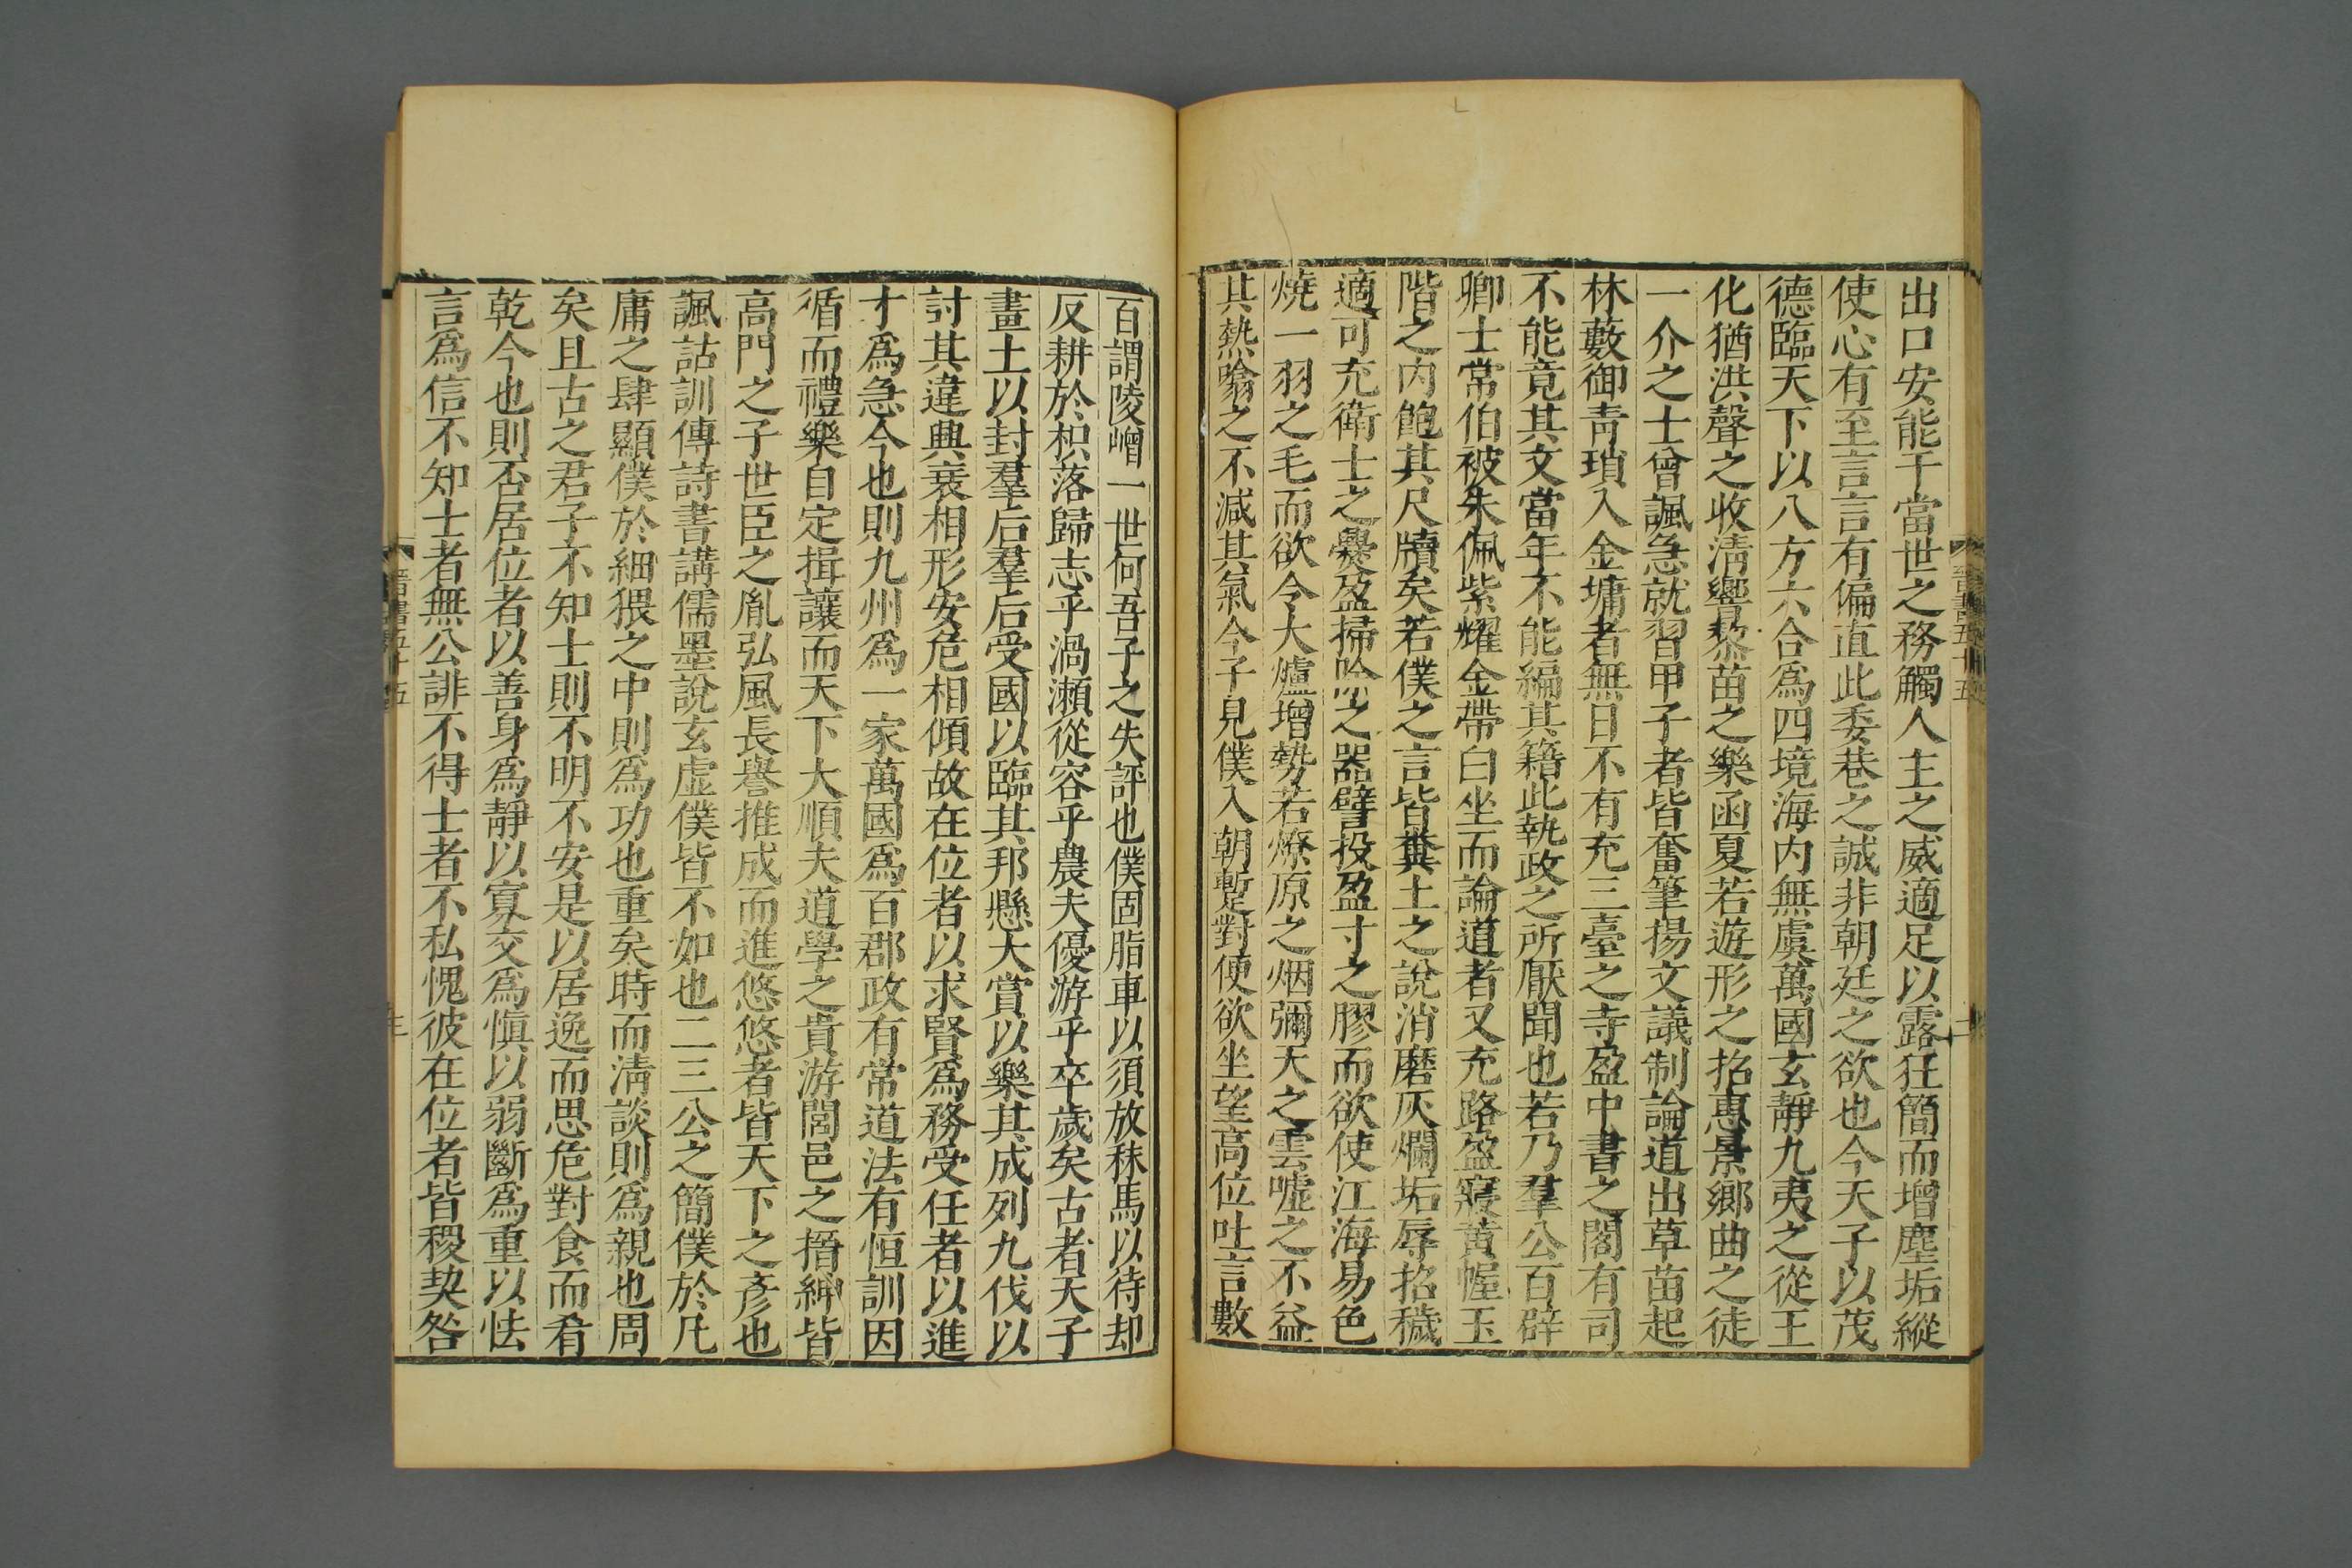 出口安能干當世之務觸人主之威適足以露狂簡而增塵垢縱
使心有至言言有偏直此委巷之誠非朝廷之欲也今天子以茂
德臨天下以八方六合爲四境海內無虞萬國玄靜九夷之從王
化猶洪聲之收淸響黎苗之樂函夏若遊形之招惠景鄉曲之徒
一介之士曾諷急就習甲子者皆奮筆揚文議制論道出草苗起
林藪御靑瑣入金墉者無日不有充三臺之寺盈中書之閣有司
不能竟其文當年不能編其籍此執政之所厭聞也若乃羣公百辟
卿士常伯被朱佩紫耀金帶白坐而論道者又充路盈寢黃幄玉
階之內飽其尺牘矣若僕之言皆糞土之說消磨灰爛垢辱招穢
適可充衛士之爨盈掃除之器譬投盈寸之膠而欲使江海易色
燒一羽之毛而欲令大爐增勢若燎原之烟彌天之雲噓之不益
其熱噏之不減其氣今子見僕入朝暫對便欲坐望高位吐言數
百謂陵嶒一世何吾子之失評也僕固脂車以須放秣馬以待却
反耕於枳落歸志乎渦瀨從容乎農夫優游乎卒歲矣古者天子
畫土以封羣后羣后受國以臨其邦懸大賞以樂其成列九伐以
討其違興衰相形安危相傾故在位者以求賢爲務受任者以進
才爲急今也則九州爲一家萬國爲百郡政有常道法有恒訓因
循而禮樂自定揖讓而天下大順夫道學之貴游閭邑之搢紳皆
高門之子世臣之胤弘風長譽推成而進悠悠者皆天下之彥也
諷詁訓傳詩書講儒墨說玄虛僕皆不如也二三公之簡僕於凡
庸之肆顯僕於細猥之中則爲功也重矣時而淸談則爲親也周
矣且古之君子不知士則不明不安是以居逸而思危對食而肴
乾今也則否居位者以善身爲靜以寡交爲愼以弱斷爲重以怯
言爲信不知士者無公誹不得士者不私愧彼在位者皆稷契咎
晉書五十五